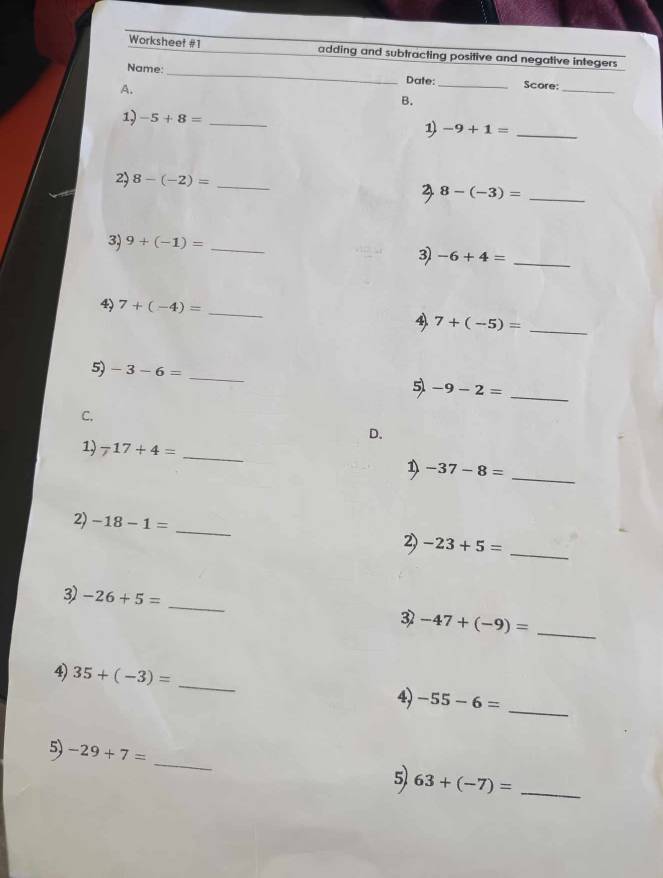 Worksheet #1
adding and subtracting positive and negative integers
Name: ____________ Date: ____________ Score: ____________
A.
1) -5 + 8 = ______
2) 8 - (-2) = ______
3) 9 + (-1) = ______
4) 7 + ( -4) = ______
5) - 3 - 6 = ______
B.
1) -9 + 1 = ______
2) 8 - (-3) = ______
3) -6 + 4 = ______
4) 7 + ( -5) = ______
5) -9 - 2 = ______
C.
1) -17 + 4 = ______
2) -18 - 1 = ______
3) -26 + 5 = ______
4) 35 + ( -3) = ______
5) -29 + 7 = ______
D.
1) -37 - 8 = ______
2) -23 + 5 = ______
3) -47 + (-9) = ______
4) -55 - 6 = ______
5) 63 + (-7) = ______